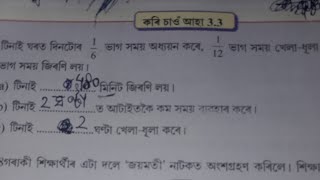 কৰি চাওঁ আহা 3.3
টিনাই ঘৰত দিনটোৰ 1/6 ভাগ সময় অধ্যয়ন কৰে, 1/12 ভাগ সময় খেলা-ধূলা
ভাগ সময় জিৰণি লয়।
a) টিনাই ......480...... মিনিট জিৰণি লয়।
) ............ ত আটাইতকৈ কম সময় ব্যৱহাৰ কৰে।
) টিনাই ......2 ঘণ্টা খেলা-ধূলা কৰে।
গৰাকী শিক্ষাৰ্থীৰ এটা দলে ‘জয়মতী’ নাটকত অংশগ্ৰহণ কৰিলে। শিক্ষা